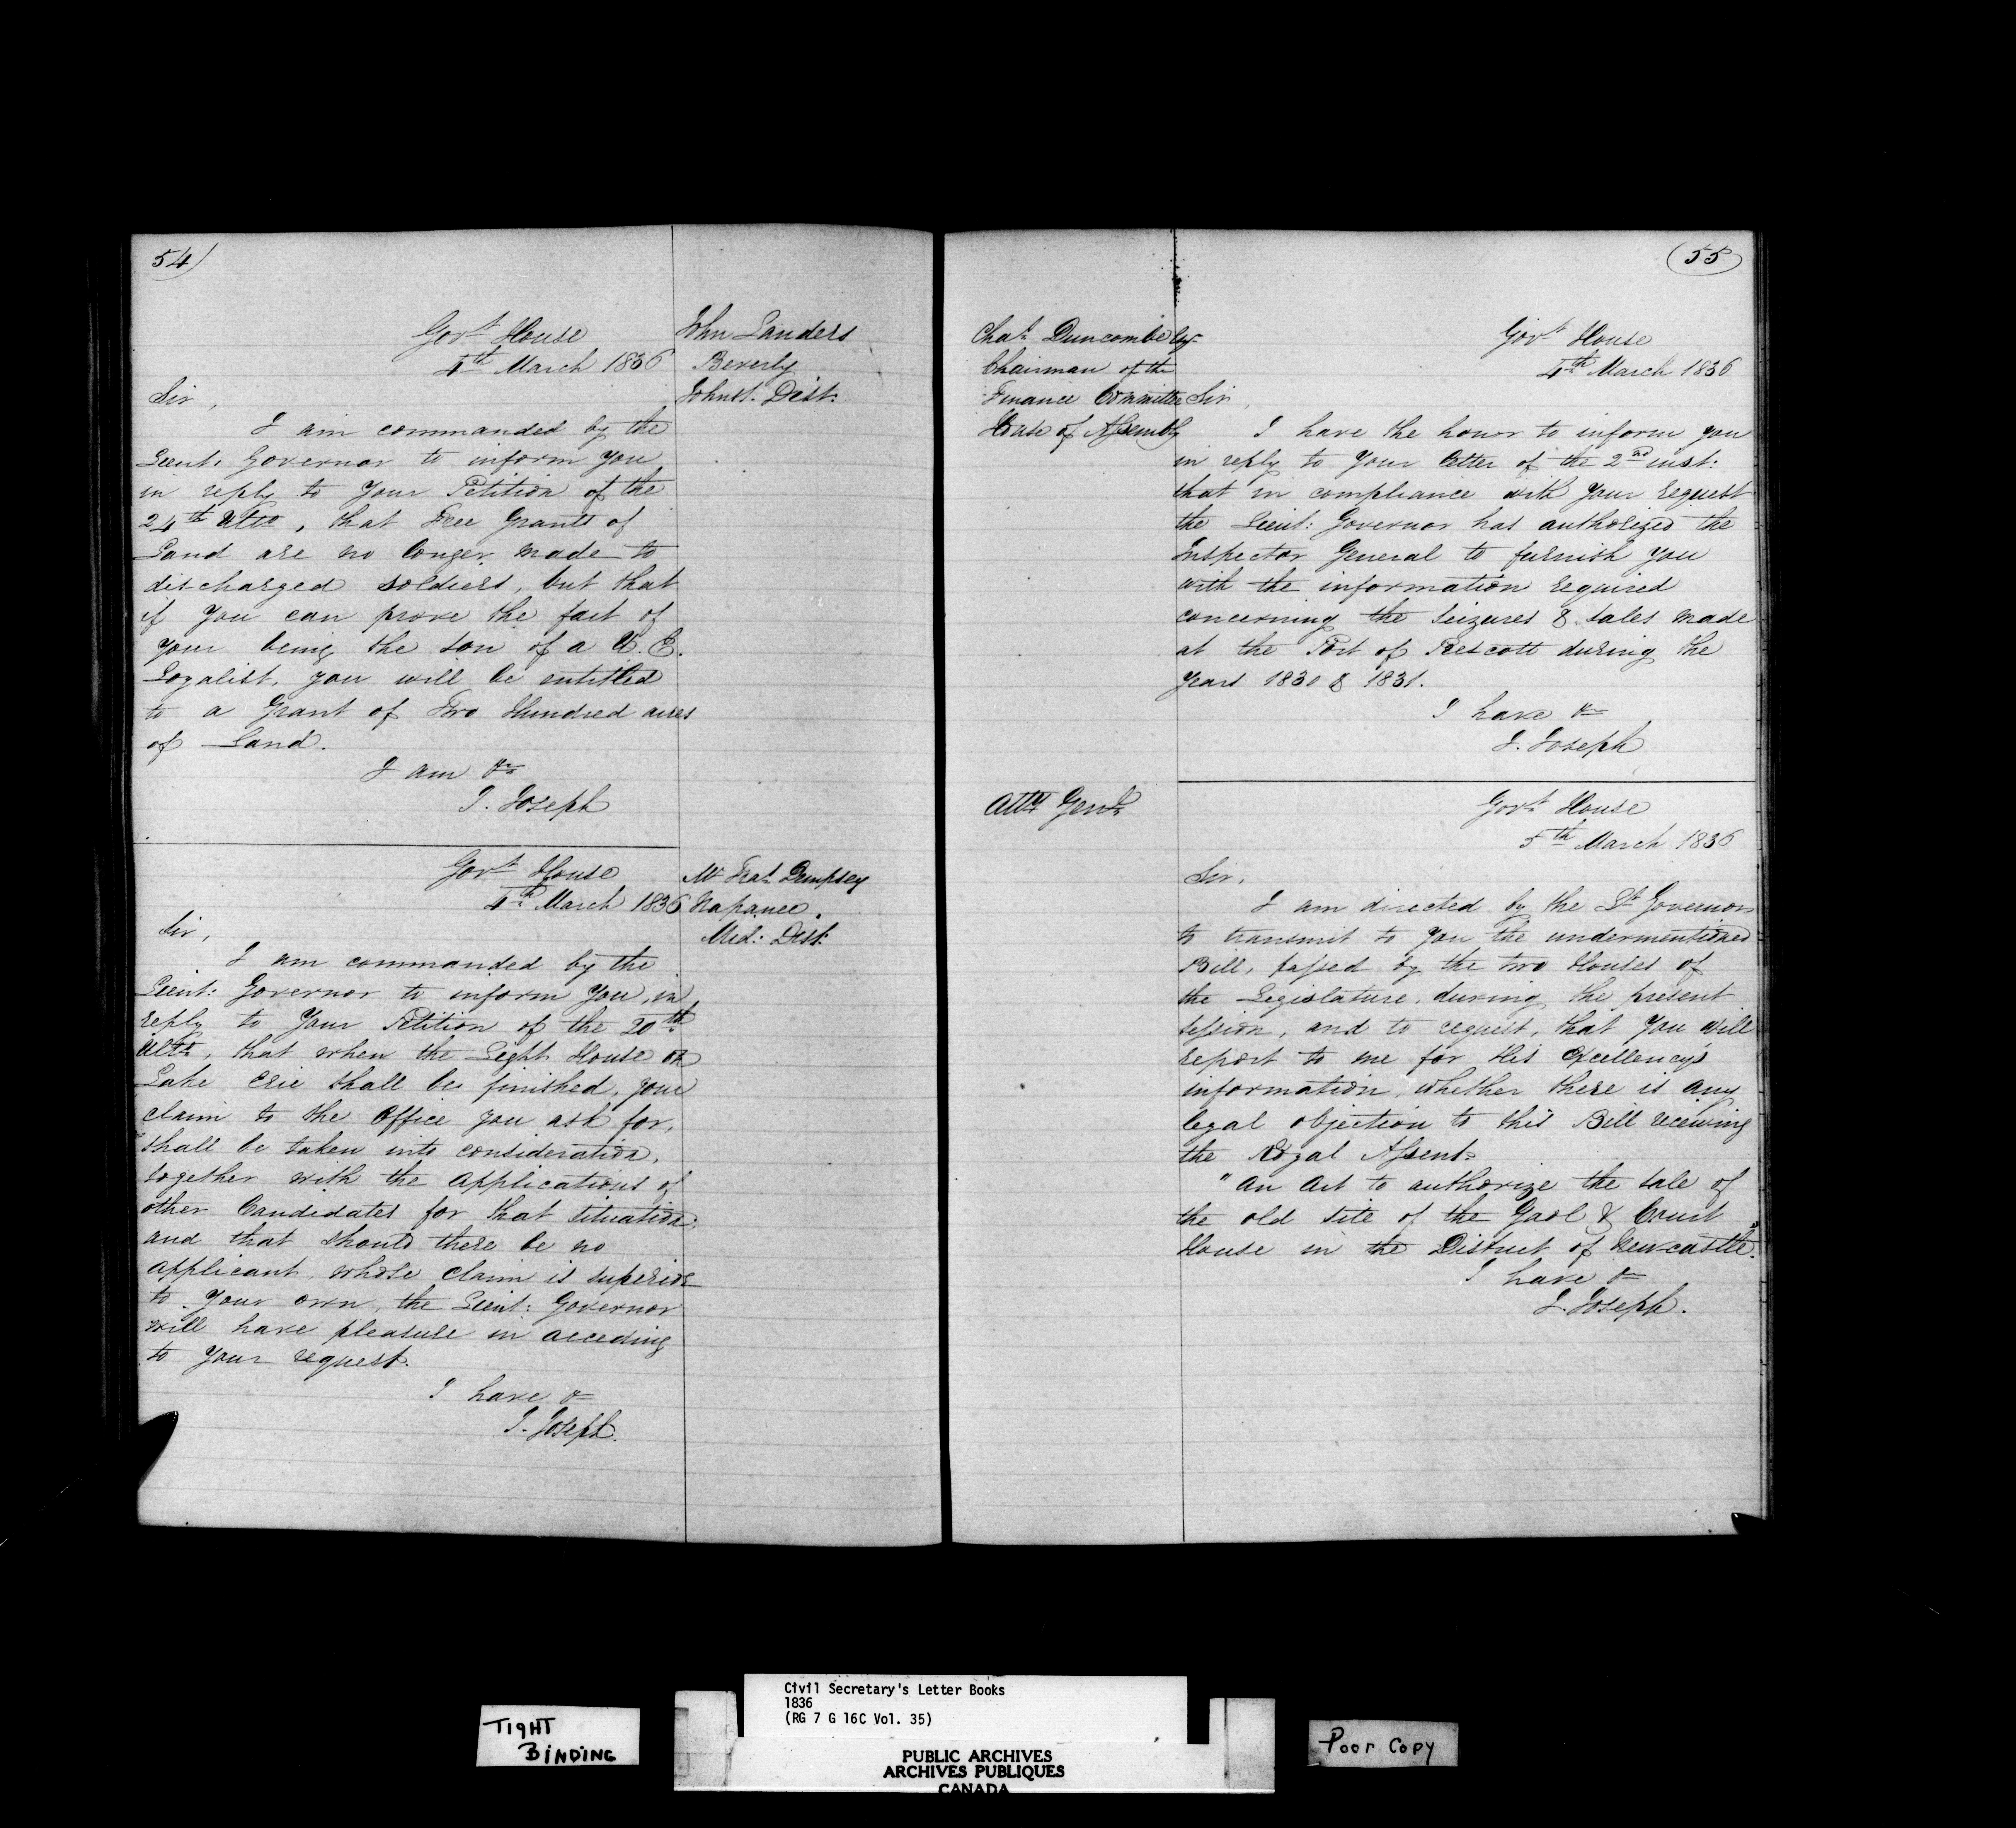 54)
Govt House
4th March 1836
John Landers
Beverly
Johnst. Dist.
Sir,
I am commanded by the
Lieut: Governor to inform you
in reply to Your Petition of the
24th Ulto, that Free Grants of
Land are no longer made to
discharged soldiers, but that
if you can prove the fact of
your being the son of a U.E.
Loyalist, you will be entitled
to a Grant of Two Hundred acres
of Land.
I am &c
J. Joseph
Govt House
4th March 1836
Mr Dempsey
Napanee.
Mid: Dist:
Sir,
I am commanded by the
Lieut: Governor to inform You, in
reply to Your Petition of the 20th
Ulto, that when the Light House on
Lake Erie shall be finished, your
claim to the Office you ask for,
shall be taken into consideration,
together with the applications of
other Candidates for that situation;
and that should there be no
applicant, whose claim is superior
to Your own, the Lieut: Governor
will have pleasure in acceding
to Your request.
I have &c
J. Joseph.
55
Chas Duncombe Esqr
Chairman of the
Finance Committee
House of Assembly
Govt House
4th March 1836
Sir,
I have the honor to inform you
in reply to Your letter of the 2nd inst:
that in compliance with Your request
the Lieut: Governor has authorized the
Inspector General to furnish you
with the information required
concerning the seizures & sales made
at the Port of Prescott during the
Years 1830 & 1831.
I have &c
J. Joseph
Atty Genl
Govt House
5th March 1836
Sir,
I am directed by the Lt Governor
to transmit to you the undermentioned
Bill, passed by the two Houses of
the Legislature, during the present
session, and to request, that you will
report to me for His Excellency's
information, whether there is any
legal objection to this Bill receiving
the Royal Assent.
"An Act to authorize the sale of
the old site of the Gaol & Court
House in the District of Newcastle."
I have &c
J. Joseph.
TIGHT
BINDING
Civil Secretary's Letter Books
1836
(RG 7 G 16C Vol. 35)
PUBLIC ARCHIVES
ARCHIVES PUBLIQUES
CANADA
Poor Copy